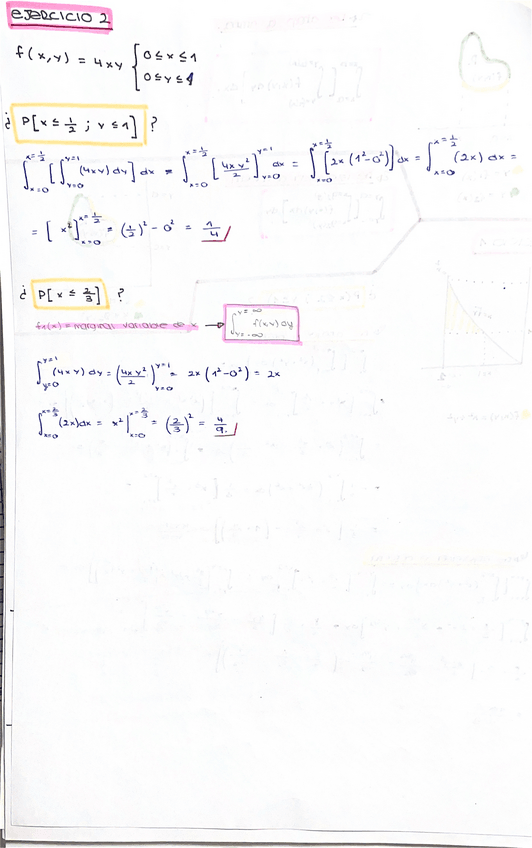 EJERCICIO 2
f(x,y) = 4xy { 0 ≤ x ≤ 1
0 ≤ y ≤ 1
¿ P[x ≤ 1/2 ; y ≤ 1] ?
∫_{x=0}^{x=1/2} [∫_{y=0}^{y=1} (4xy) dy] dx = ∫_{x=0}^{x=1/2} [4xy²/2]_{y=0}^{y=1} dx = ∫_{x=0}^{x=1/2} [2x (1²-0²)] dx = ∫_{x=0}^{x=1/2} (2x) dx =
= [x²]_{x=0}^{x=1/2} = (1/2)² - 0² = 1/4
¿ P[x ≤ 2/3] ?
fx(x) = marginal variable de x → ∫_{y=-∞}^{y=∞} f(x,y) dy
∫_{y=0}^{y=1} (4xy) dy = (4xy²/2)_{y=0}^{y=1} = 2x (1²-0²) = 2x
∫_{x=0}^{x=2/3} (2x) dx = x²]_{x=0}^{x=2/3} = (2/3)² = 4/9